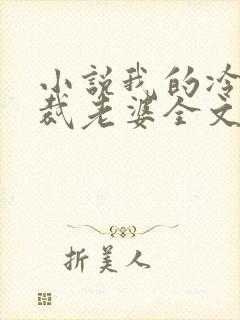 小説我的冷
裁老婆全文
折美人